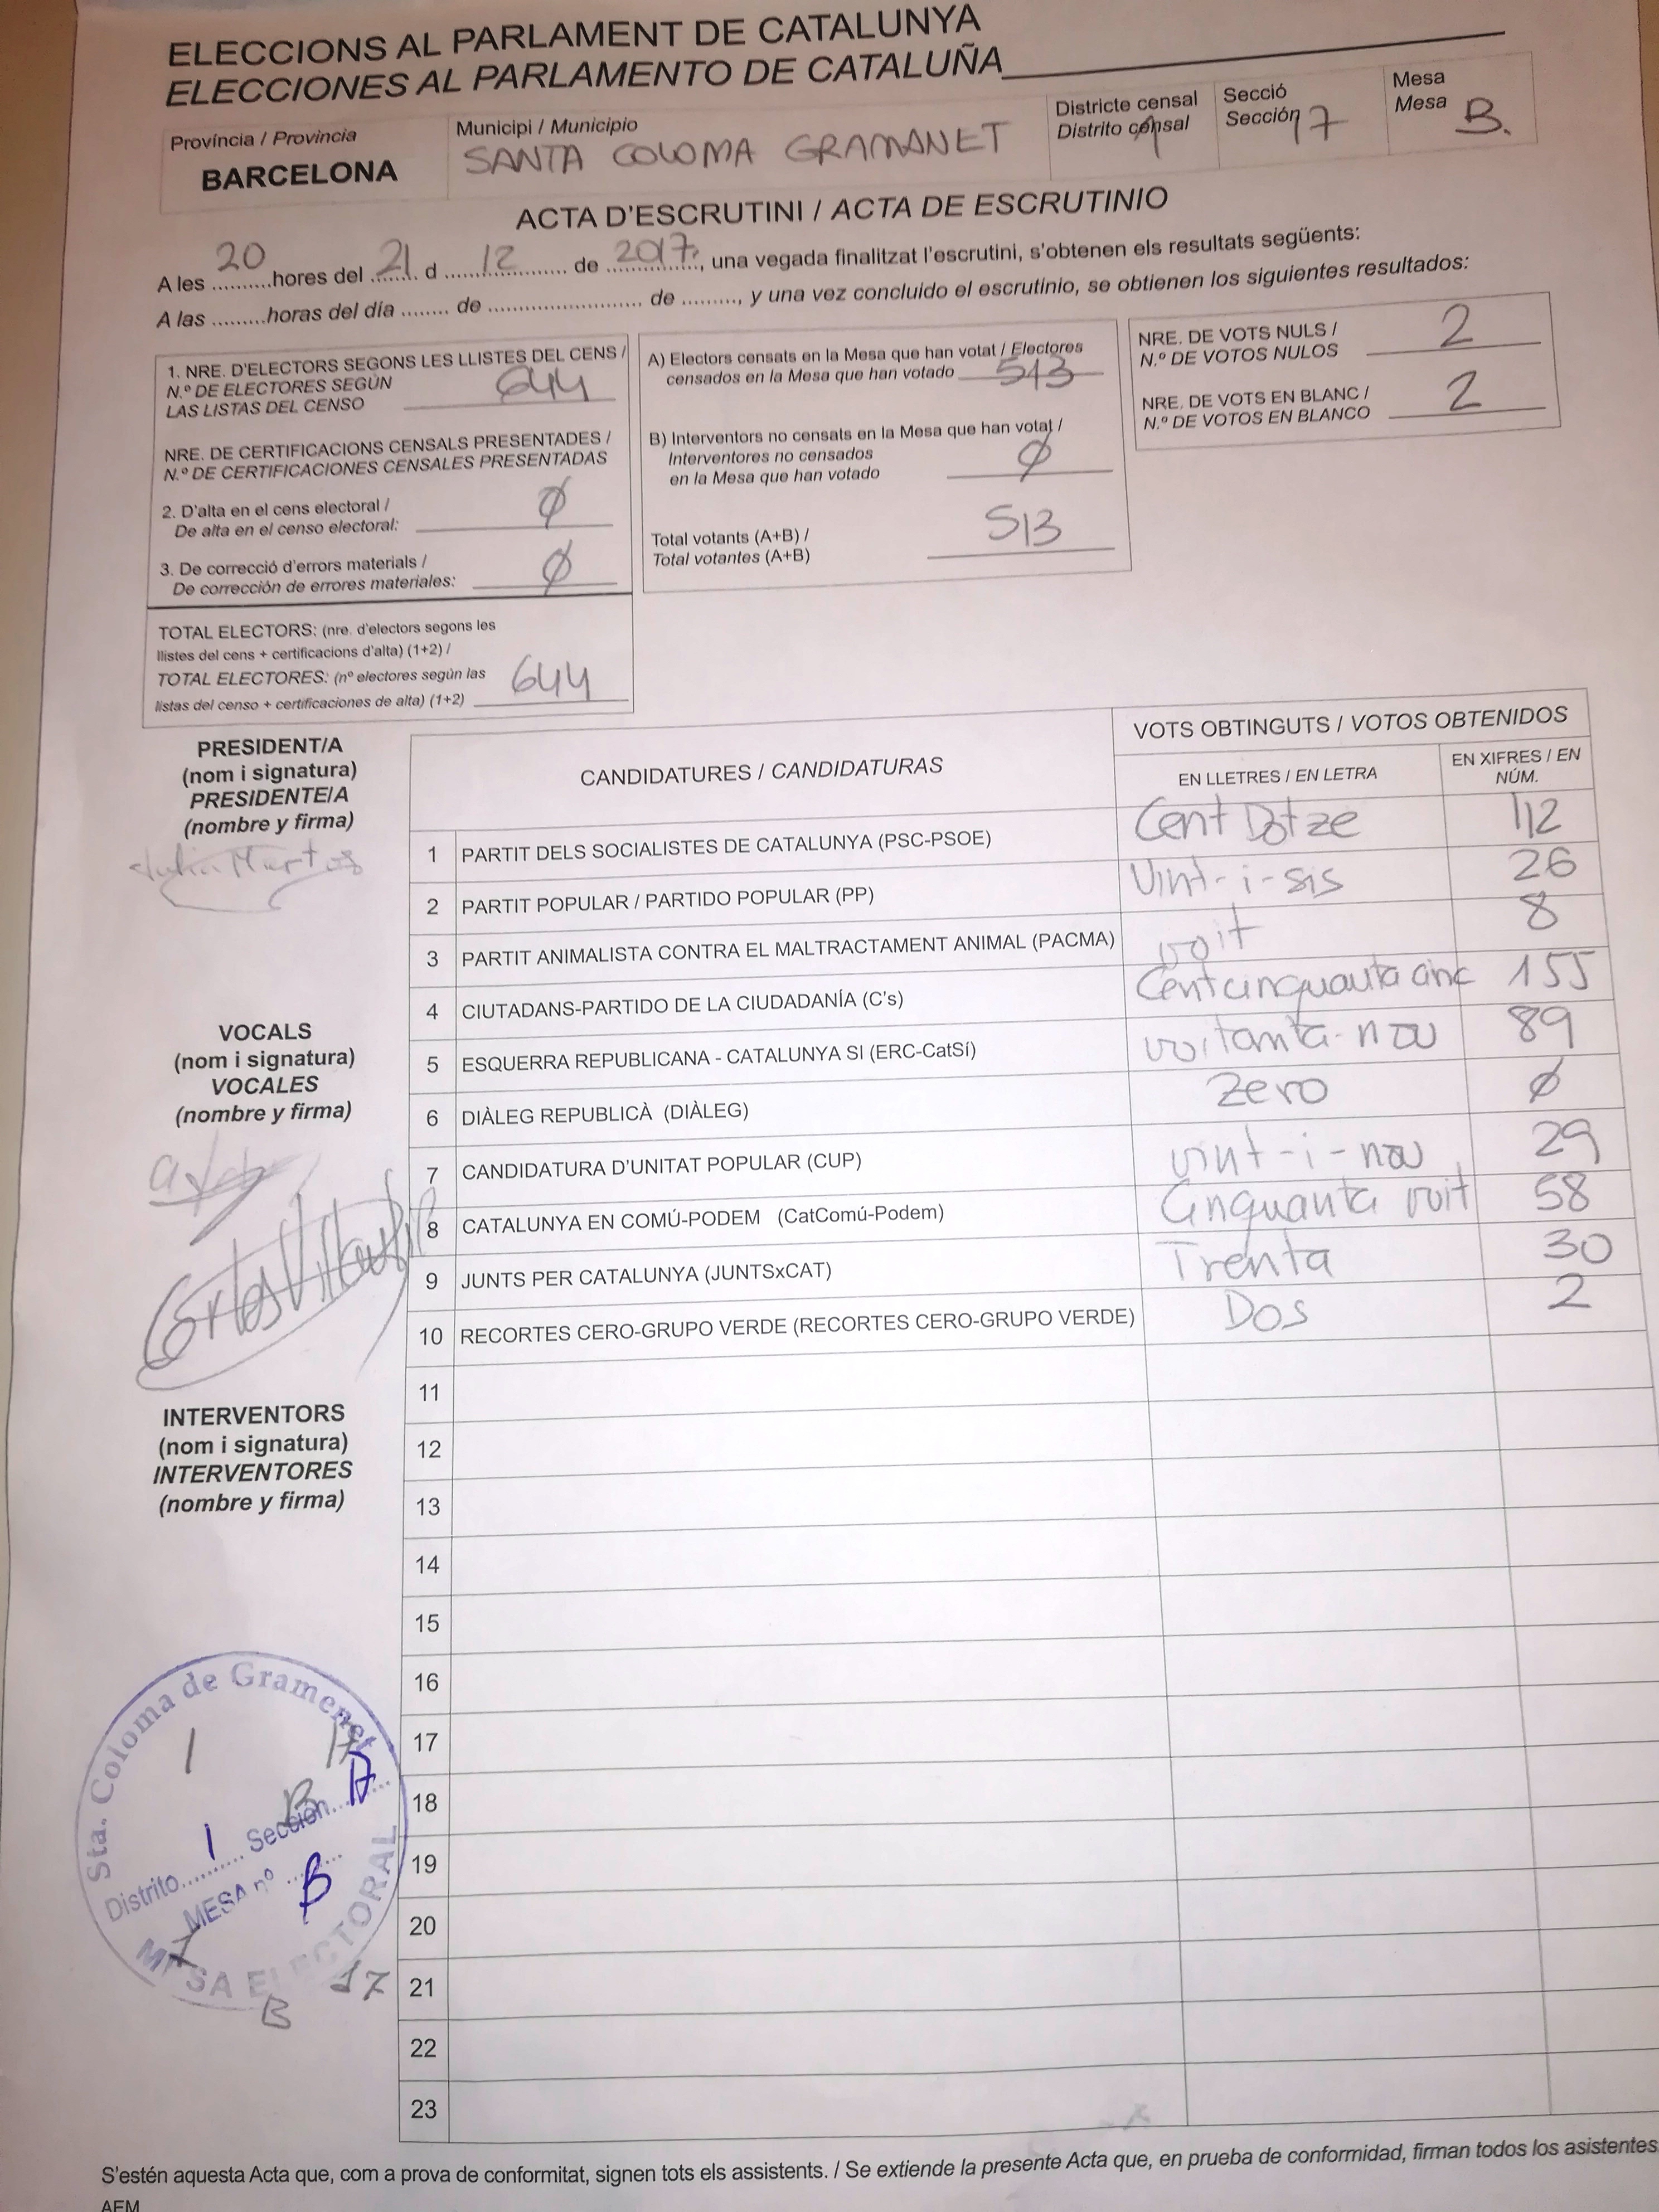 ELECCIONS AL PARLAMENT DE CATALUNYA
ELECCIONES AL PARLAMENTO DE CATALUÑA
Província / Provincia
BARCELONA
Municipi / Municipio
SANTA COLOMA GRAMANET
Districte censal
Distrito censal
1
Secció
Sección 17
Mesa
Mesa B.
ACTA D'ESCRUTINI / ACTA DE ESCRUTINIO
A les 20 hores del 21 d 12 de 2017, una vegada finalitzat l'escrutini, s'obtenen els resultats següents:
A las .........horas del día ........ de ........................ de ........., y una vez concluido el escrutinio, se obtienen los siguientes resultados:
1. NRE. D'ELECTORS SEGONS LES LLISTES DEL CENS /
N.º DE ELECTORES SEGÚN
LAS LISTAS DEL CENSO 644
NRE. DE CERTIFICACIONS CENSALS PRESENTADES /
N.º DE CERTIFICACIONES CENSALES PRESENTADAS
2. D'alta en el cens electoral /
De alta en el censo electoral: Ø
3. De correcció d'errors materials /
De corrección de errores materiales: Ø
TOTAL ELECTORS: (nre. d'electors segons les
llistes del cens + certificacions d'alta) (1+2) /
TOTAL ELECTORES: (nº electores según las
listas del censo + certificaciones de alta) (1+2) 644
A) Electors censats en la Mesa que han votat / Electores
censados en la Mesa que han votado 513
B) Interventors no censats en la Mesa que han votat /
Interventores no censados
en la Mesa que han votado Ø
Total votants (A+B) /
Total votantes (A+B) 513
NRE. DE VOTS NULS /
N.º DE VOTOS NULOS 2
NRE. DE VOTS EN BLANC /
N.º DE VOTOS EN BLANCO 2
PRESIDENT/A
(nom i signatura)
PRESIDENTE/A
(nombre y firma)
VOCALS
(nom i signatura)
VOCALES
(nombre y firma)
INTERVENTORS
(nom i signatura)
INTERVENTORES
(nombre y firma)
CANDIDATURES / CANDIDATURAS
VOTS OBTINGUTS / VOTOS OBTENIDOS
EN LLETRES / EN LETRA
EN XIFRES / EN
NÚM.
1 PARTIT DELS SOCIALISTES DE CATALUNYA (PSC-PSOE) Cent Dotze 112
2 PARTIT POPULAR / PARTIDO POPULAR (PP) Vint-i-sis 26
3 PARTIT ANIMALISTA CONTRA EL MALTRACTAMENT ANIMAL (PACMA) vuit 8
4 CIUTADANS-PARTIDO DE LA CIUDADANÍA (C's) Cent cinquanta cinc 155
5 ESQUERRA REPUBLICANA - CATALUNYA SI (ERC-CatSí) vuitanta-nou 89
6 DIÀLEG REPUBLICÀ (DIÀLEG) Zero Ø
7 CANDIDATURA D'UNITAT POPULAR (CUP) vint-i-nou 29
8 CATALUNYA EN COMÚ-PODEM (CatComú-Podem) Cinquanta vuit 58
9 JUNTS PER CATALUNYA (JUNTSxCAT) Trenta 30
10 RECORTES CERO-GRUPO VERDE (RECORTES CERO-GRUPO VERDE) Dos 2
11
12
13
14
15
16
17
18
19
20
21
22
23
Sta. Coloma de Gramenet
1 17
B
Distrito 1 Sección 17
MESA nº B
MESA ELECTORAL
17
B
S'estén aquesta Acta que, com a prova de conformitat, signen tots els assistents. / Se extiende la presente Acta que, en prueba de conformidad, firman todos los asistentes
AEM